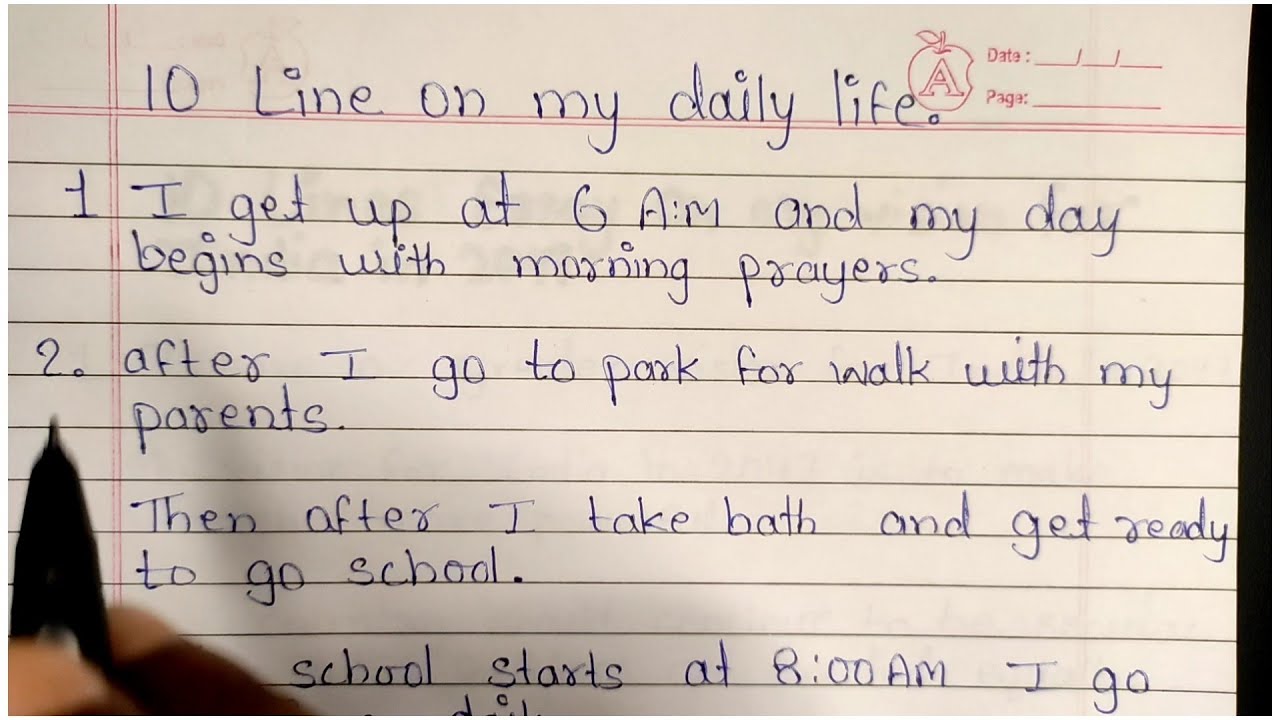 10 Line on my daily life.
A
Date : ___/___/___
Page: ___________
1 I get up at 6 A:M and my day
begins with morning prayers.
2. after I go to park for walk with my
parents.
Then after I take bath and get ready
to go school.
school starts at 8:00 AM I go